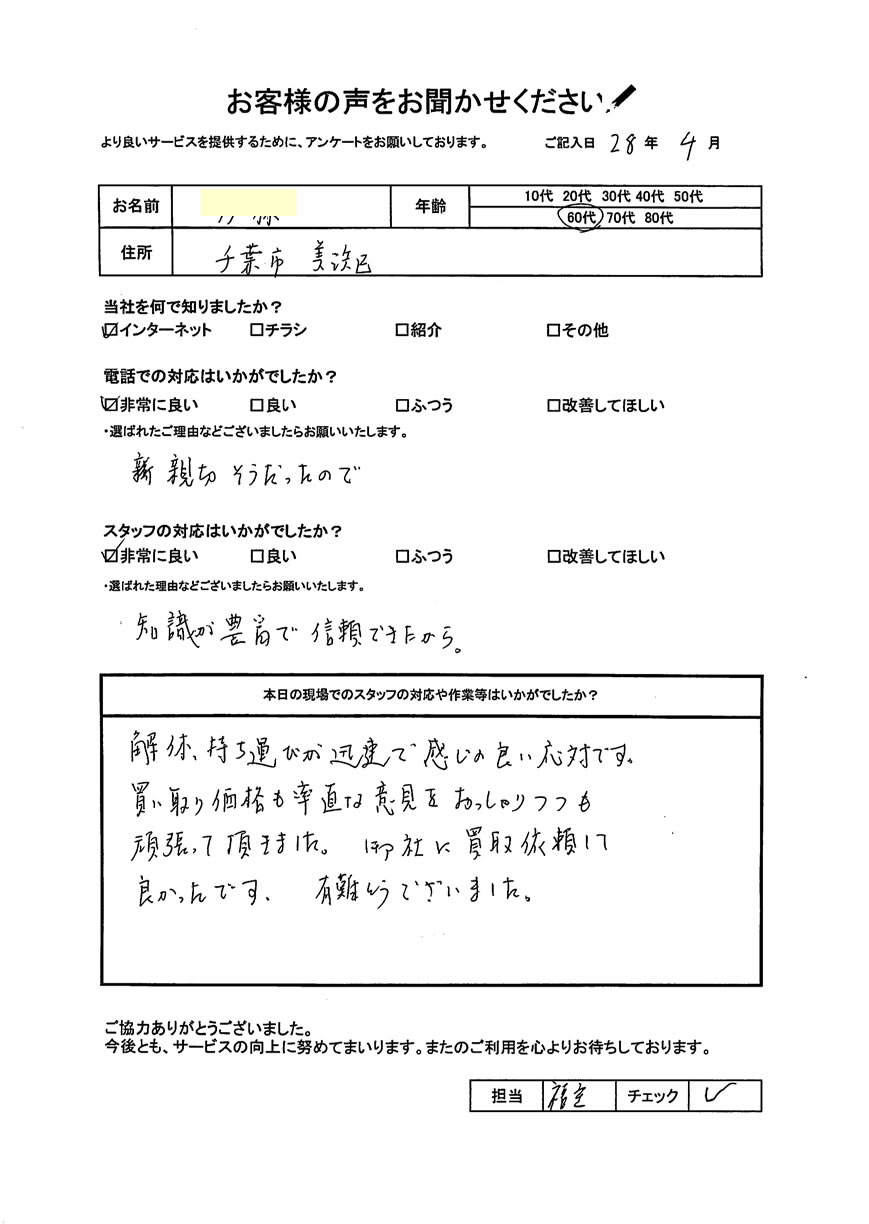 お客様の声をお聞かせください
より良いサービスを提供するために、アンケートをお願いしております。 ご記入日 28 年 4 月
お名前 年齢 10代 20代 30代 40代 50代
60代 70代 80代
住所 千葉市 美浜区
当社を何で知りましたか？
☑インターネット □チラシ □紹介 □その他
電話での対応はいかがでしたか？
☑非常に良い □良い □ふつう □改善してほしい
・選ばれたご理由などございましたらお願いいたします。
親切そうだったので
スタッフの対応はいかがでしたか？
☑非常に良い □良い □ふつう □改善してほしい
・選ばれた理由などございましたらお願いいたします。
知識が豊富で信頼できたから。
本日の現場でのスタッフの対応や作業等はいかがでしたか？
解体、持ち運びが迅速で感じの良い応対です。
買い取り価格も率直な意見をおっしゃりつつも
頑張って頂きました。 御社に買取依頼して
良かったです。 有難とうございました。
ご協力ありがとうございました。
今後とも、サービスの向上に努めてまいります。またのご利用を心よりお待ちしております。
担当 チェック ✓